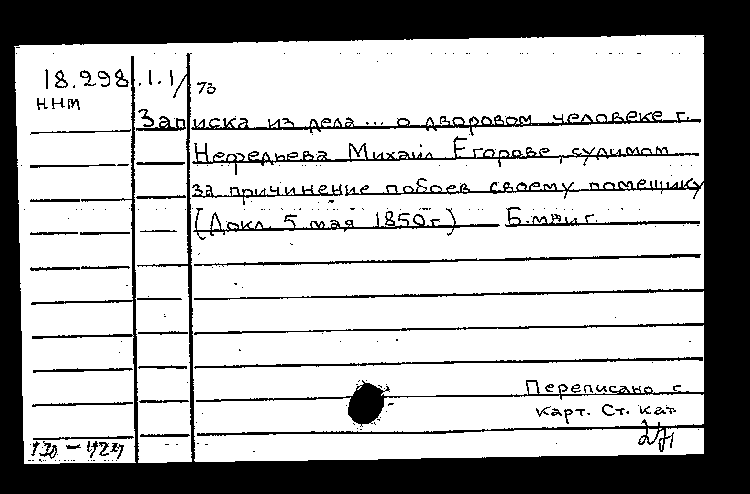 18.298.1.1/73
ННТ
Записка из дела... о дворовом человеке г.
Нефедьева Михаил Егорове, судимом
за причинение побоев своему помещику
(Докл. 5 мая 1850г.) Б.м. и г.
Переписано с
карт. Ст. кат